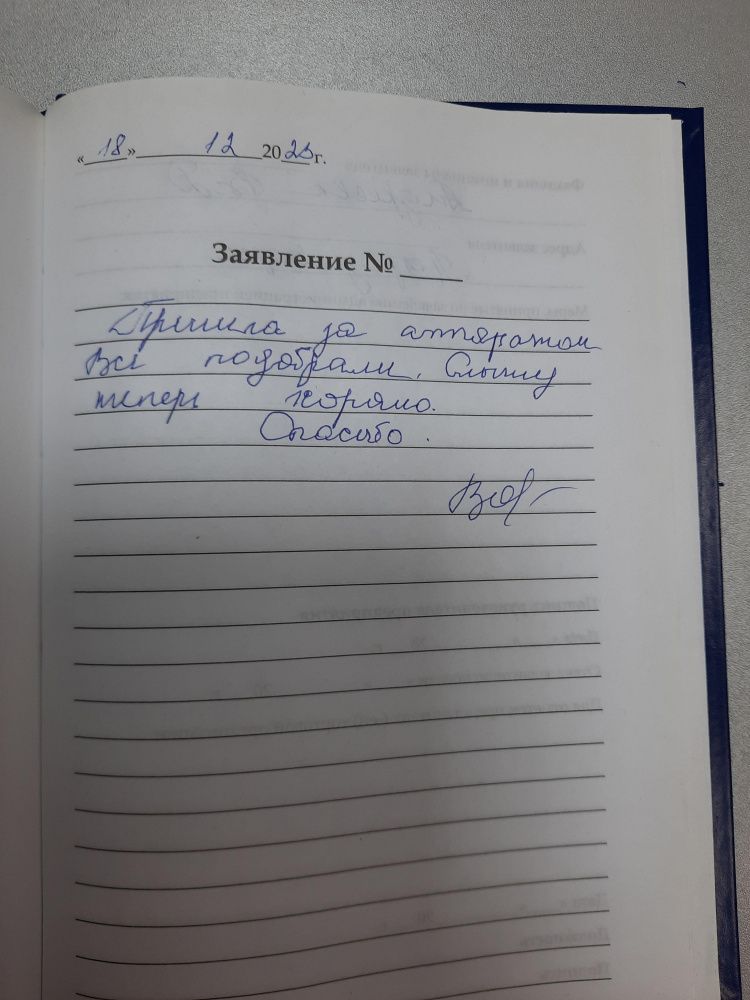 «18» 12 2023 г.
Заявление № ____
Пришла за аппаратом
Всё подобрали. Слышу
теперь хорошо.
Спасибо.